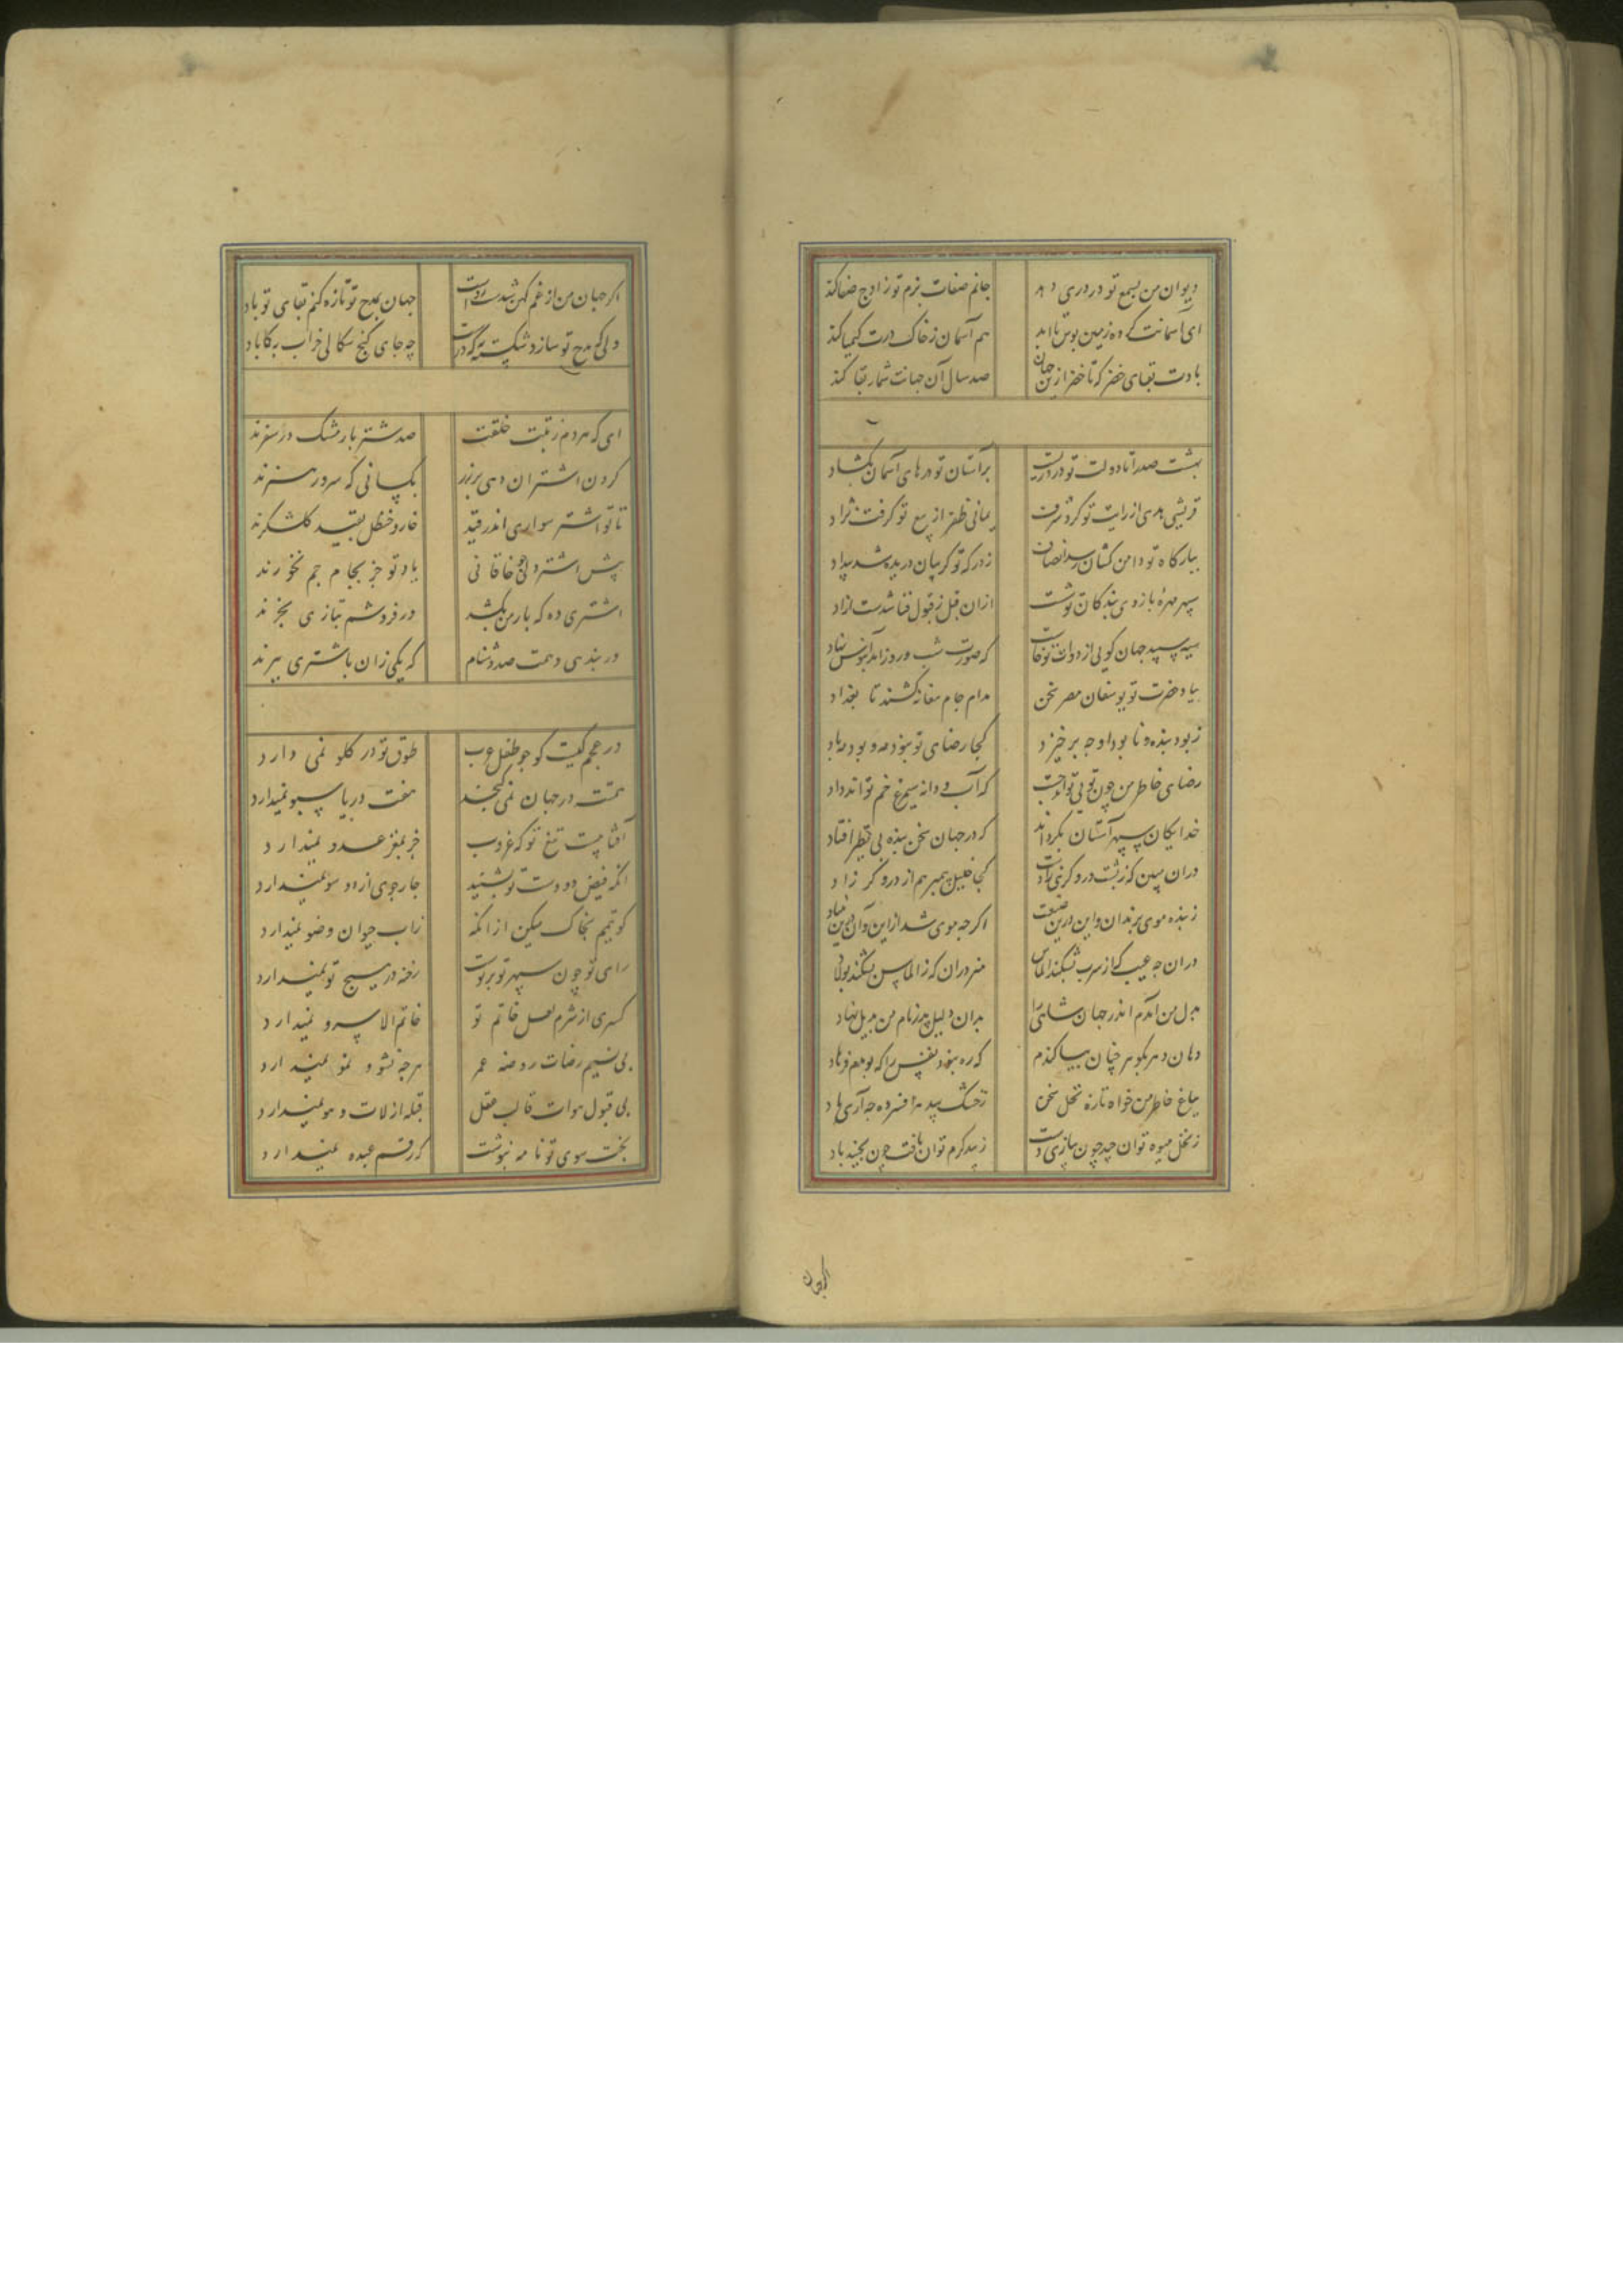 دیوان من بسمع تو در دری دهد جانم صفات بزم تو ز اوج صفا کند
ای آسمانت کرده زمین بوس تا ابد هم آسمان ز خاک درت کیمیا کند
بادت بقای خضر که تا خضر ازین جهان صد سال آن جهانت شمار بقا کند
بهشت صدرا تا دولت تو در دربست بر آستان تو درهای آسمان بکشاد
قریشی هدی از رایت تو کرد شرف یمانی ظفر از تیغ تو کرفت نژاد
ببارکاه تو دامن کشان رسد انصاف ز درکه تو کریبان دریده شد بیداد
سپهر مهره بازوی بندکان تو کشت ازان قبل ز قبول فنا شدست ازاد
سیه سپید جهان کویی از دوات تو خاست که صورت شب و روز آمد ابنوس نهاد
بیاد حضرت تو یوسفان مصر سخن مدام جام معانی کشند تا بغداد
ز بود بنده و نابود او چه برخیزد کجا رضای تو نبود مه و بود مباد
رضای خاطر من چون تویی تواند جست که آب و دانه سیمرغ خم تواند داد
خدایکان سپهر آستان نکو داند که در جهان سخن بنده بی نظیر افتاد
در ان مبین که ز پشت دروکری زادست کجا خلیل پیمبر هم از دروکر زاد
ز بنده موی بزندان و این درین صنعت اکرچه موی شد از این و آن
دران چه عیب که از سرب بشکند الماس هنر دران که ز الماس بشکند پولاد
بدل من آمدم اندر جهان سنائی را بدان دلیل پدر نام من بدیل نهاد
دهان دهر بکوهر چنان بیاکندم که ره نبود نفس را که بوی می فرهاد
بباغ خاطر من خواه تازه نخل سخن ز خشک بید هر افسرده چه آری یاد
ز نخل میوه توان چید چون بیازی دست ز بید کرم توان یافت چون بجنبد باد
اکر جهان
اکر جهان من از غم کهن شدست رواست جهان بمدح تو تازه کنم بقای تو باد
دلی که مدح تو سازد شکسته کی درست چه جای کنج سکالی خراب به که اباد
ای که مردم ز تبت خلقت صد شتر بار مشک در سفرند
کردن اشتران دهی پر زر بکسانی که سرور هنرند
تا تو اشتر سواری اندر قید خار و حنظل بقید کلشکرند
پیش اشتر دلی چو خاقانی یاد تو جز بجام جم نخورند
اشتری ده که بار من بکشد ور فروشم بتازی بخرند
ور بندی دهمت صد دشنام که یکی زان باشتری ببرند
در عجم کیست کو چو طفل عرب طوق تو در کلو نمی دارد
همتت در جهان نمی کنجد هفت دریا سبو نمیدارد
آفتابیست تیغ تو که غروب جز بمغز عدو نمیدارد
انکه فیض دو دست تو بشنید چار جوی از دو سو نمیدارد
کو تیمم بخاک میکن از انکه زاب حیوان وضو نمیدارد
رای تو چون سپهر تو بر توست رخنه در هیچ تو نمیدارد
کسری از شرم لعل خاتم تو خاتم الا سرو نمیدارد
بی نسیم رضات روضه عمر هرچه نشو و نمو نمیدارد
بی قبول هوات قالب عقل قبله از لات و هو نمیدارد
بخت سوی تو نامه ننوشت که رقم عبده نمیدارد